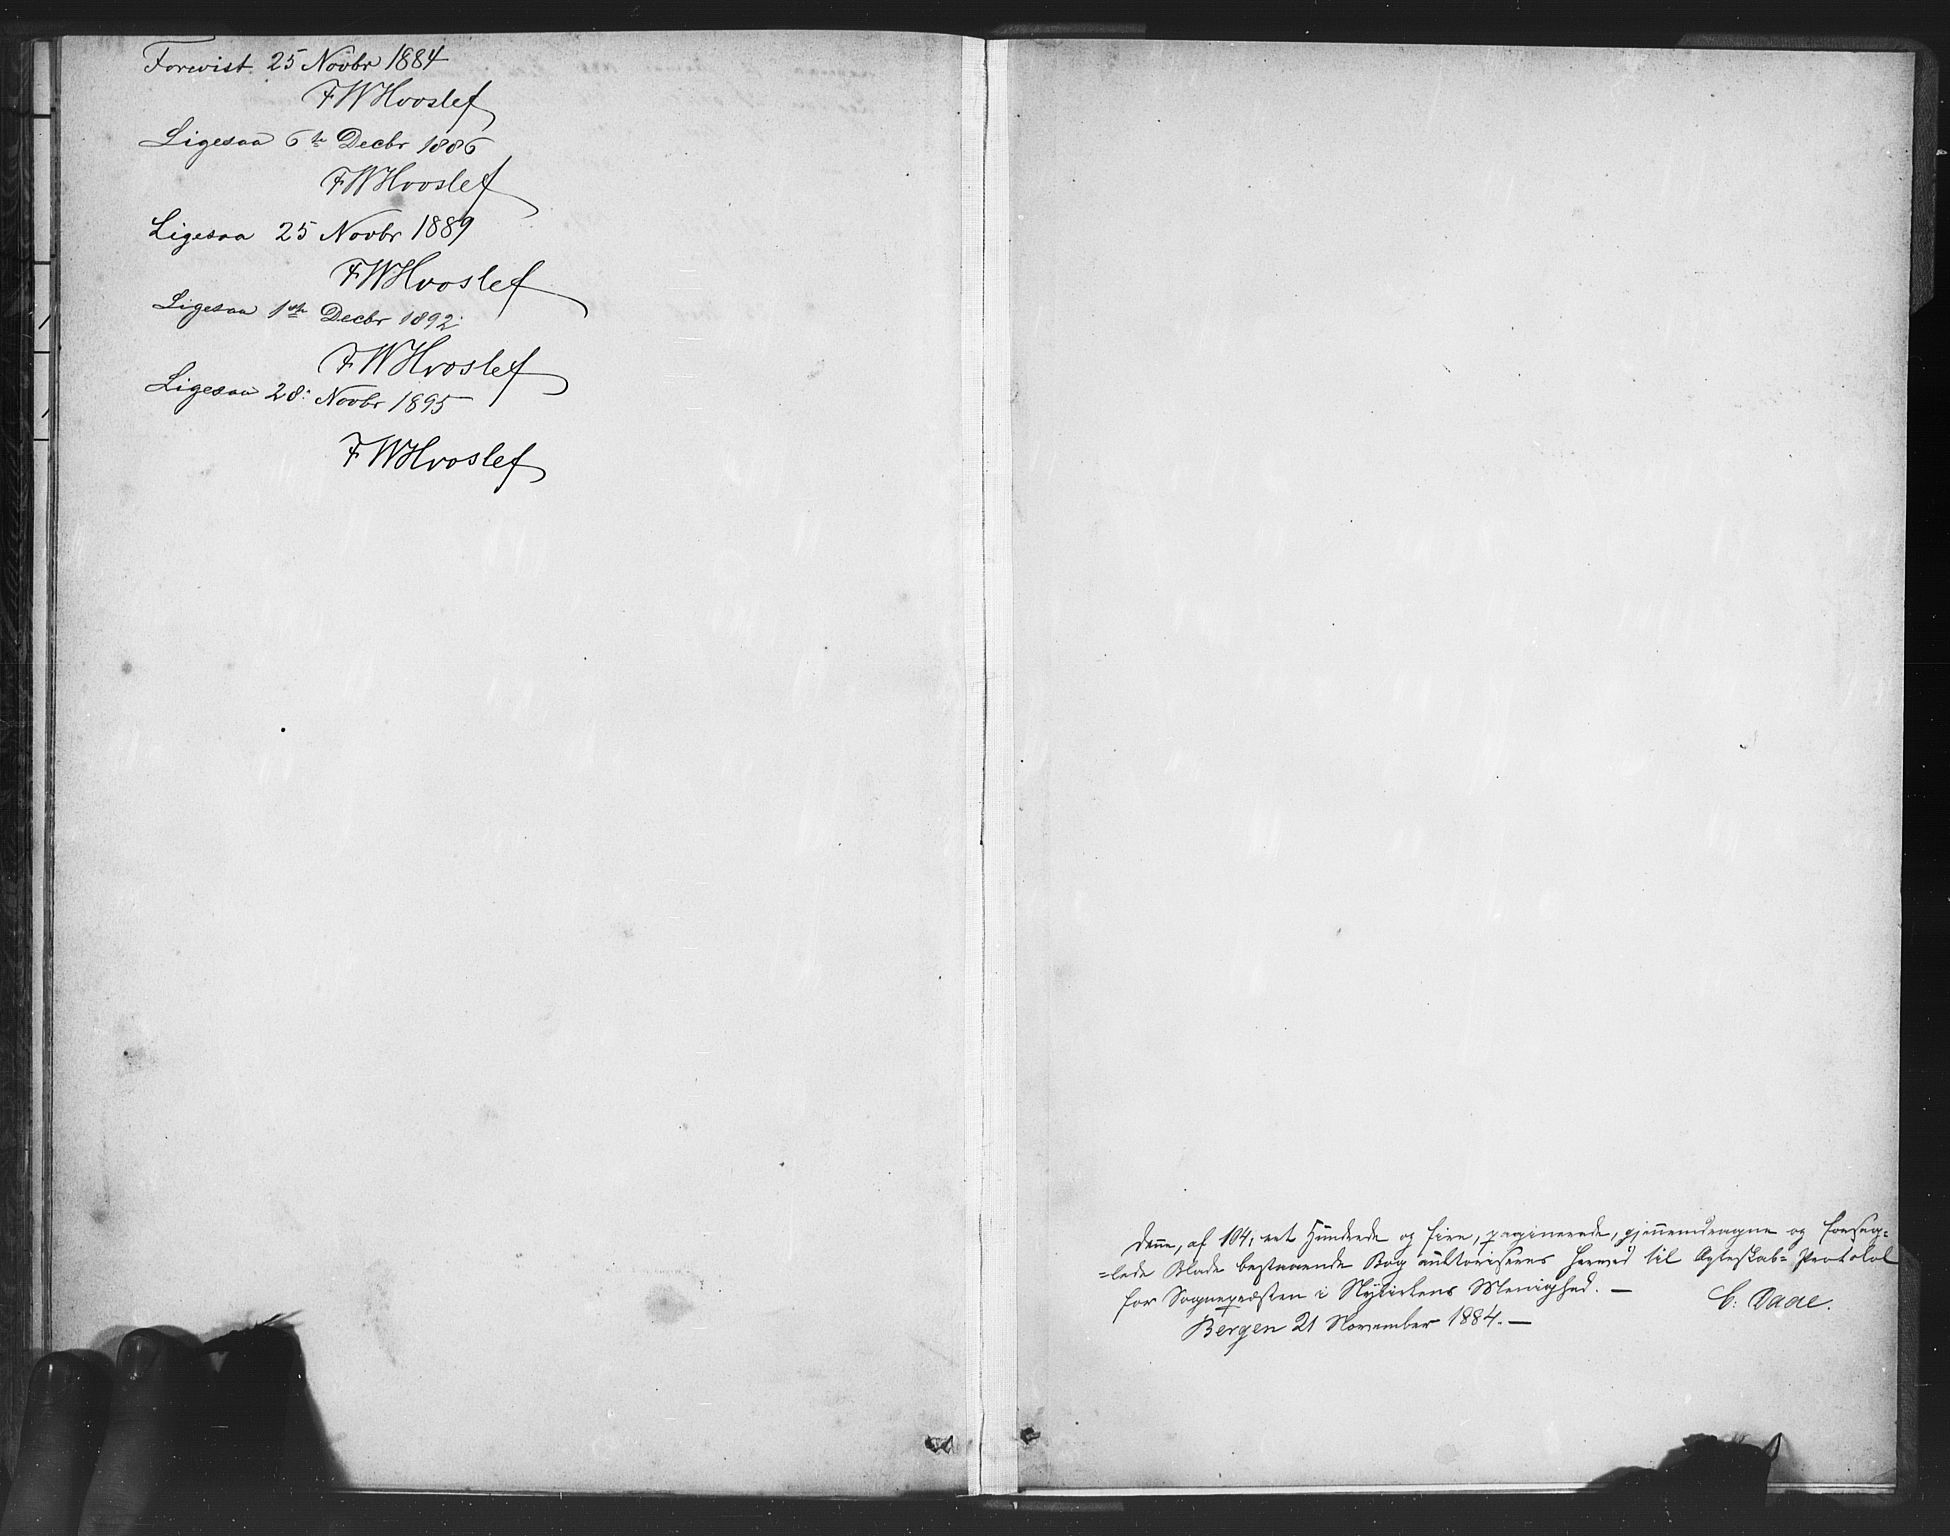 Forevist 25 Novbr 1884
FWHvoslef
Ligesaa 6te Decbr 1886
FWHvoslef
Ligesaa 25 Novbr 1889
FWHvoslef
Ligesaa 1ste Decbr 1892.
FWHvoslef
Ligesaa 28: Novbr 1895
FWHvoslef
Denne, af 104, et Hundrede og fire, paginerede, gjennemdragne og forseg=
=lede Blade bestaaende Bog auktoriseres herved til Ægteskab= Protokol
for Sognepræsten i Nykirkens Menighed. —
C: Daae.
Bergen 21 November 1884. —